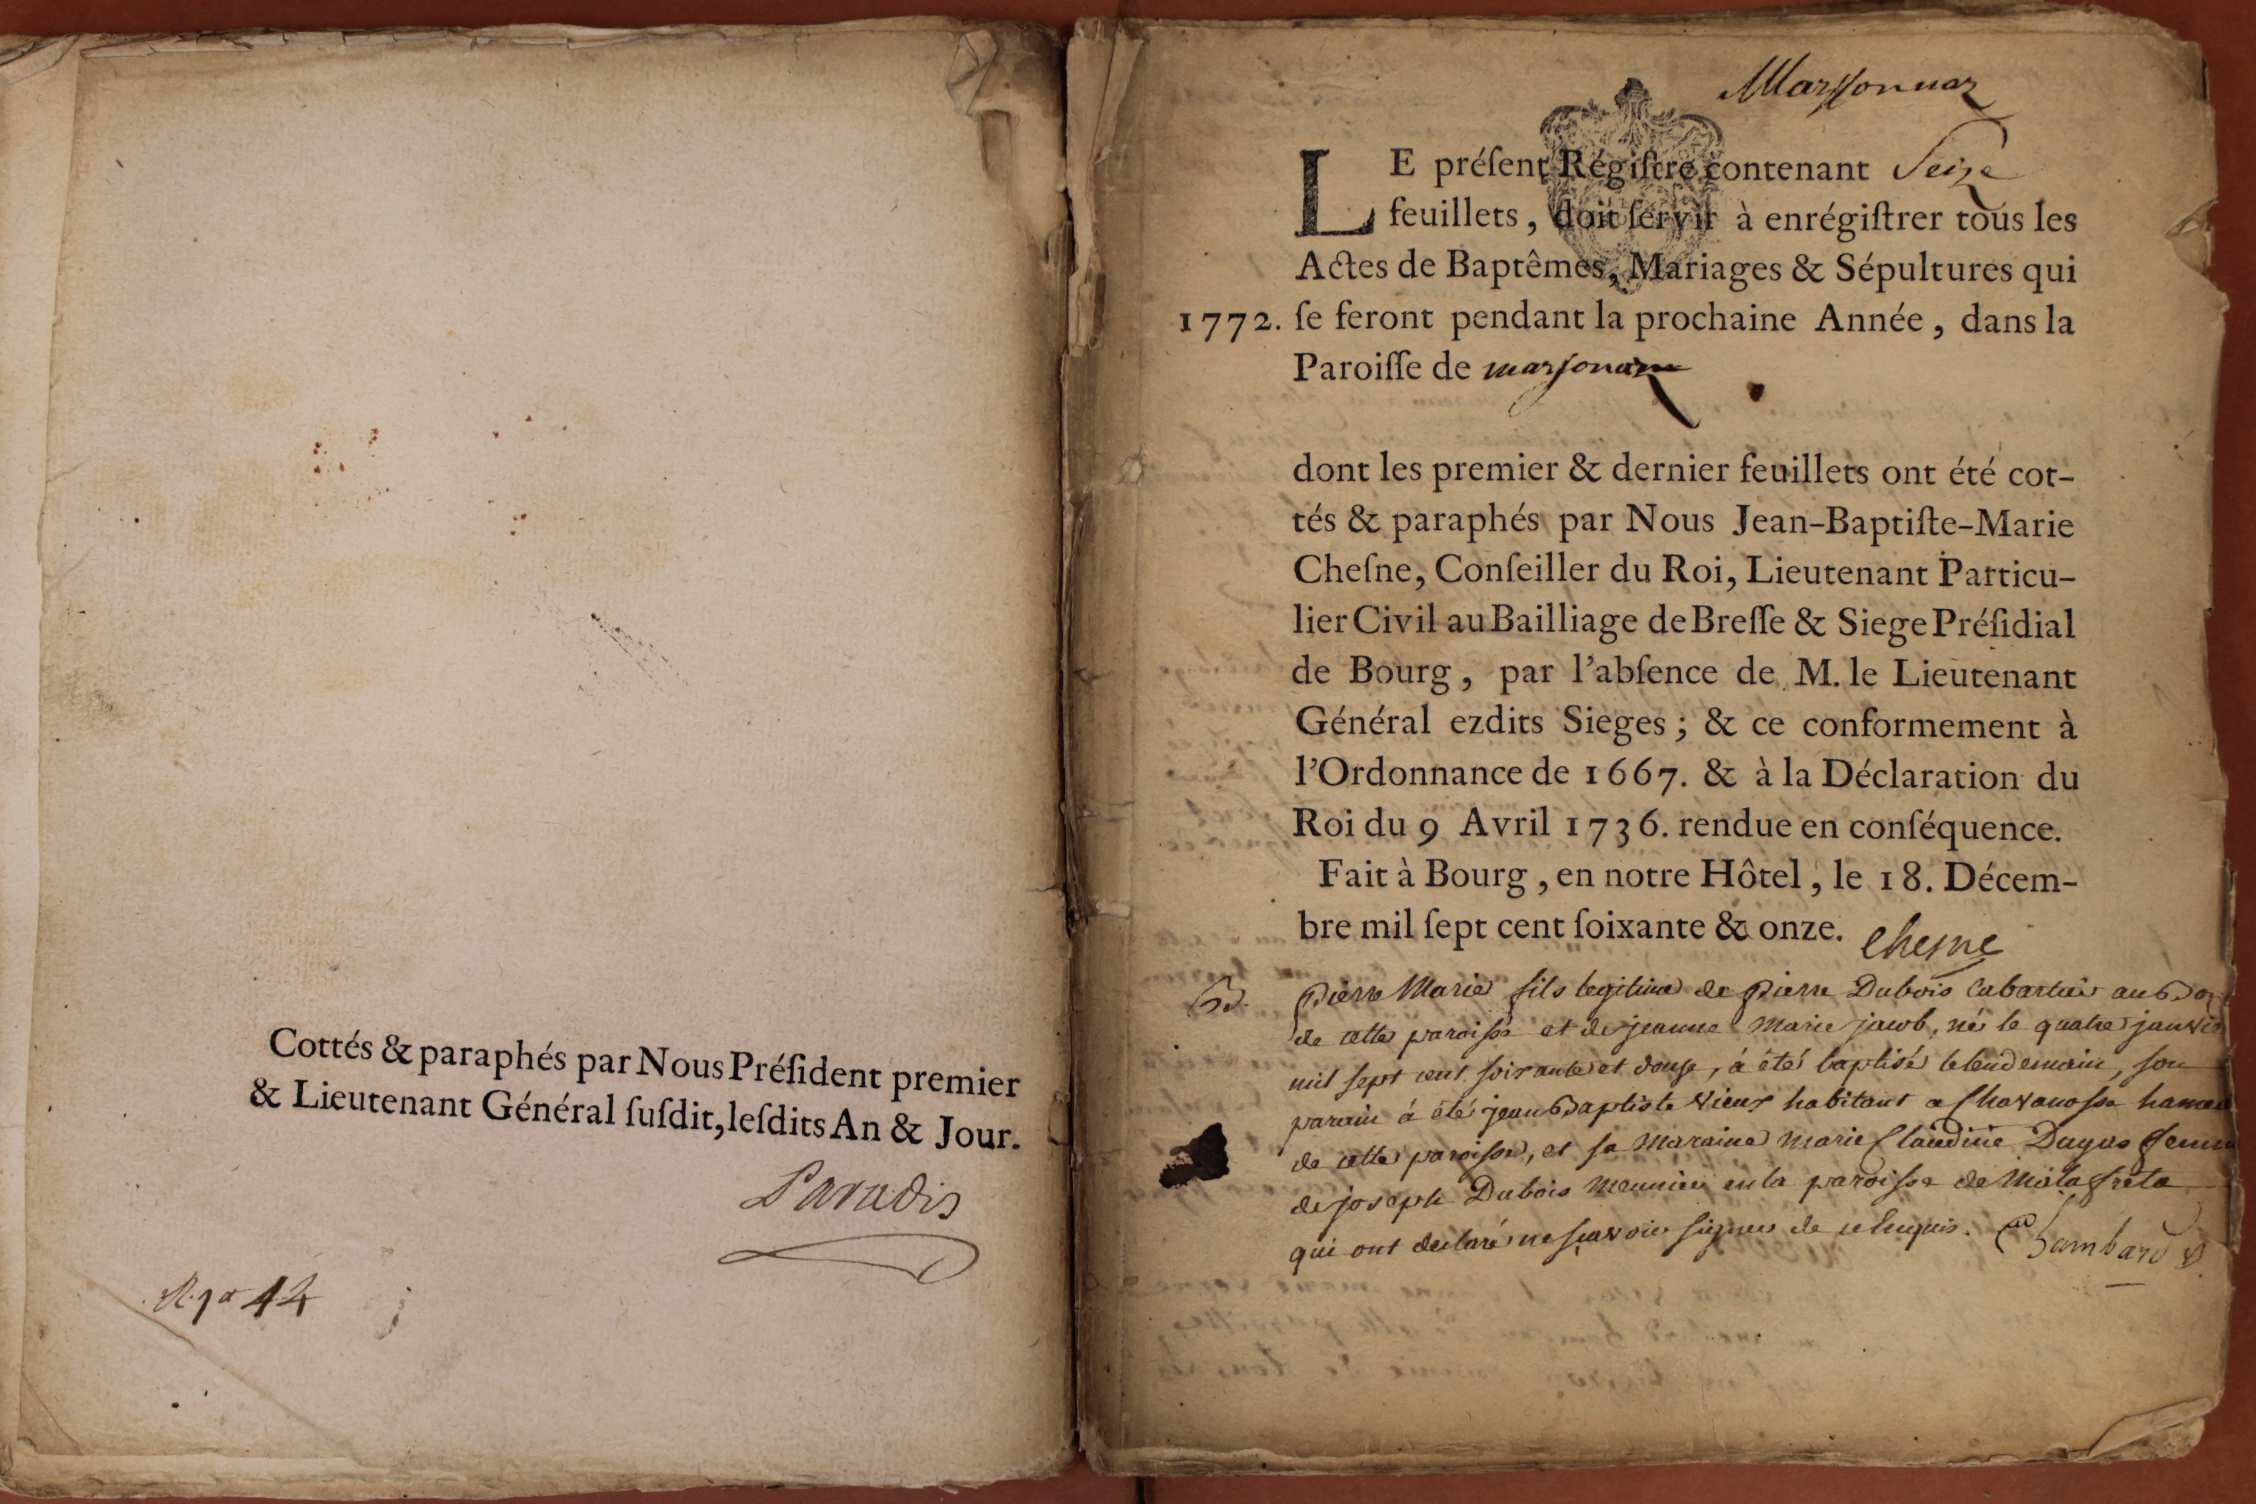 Cottés & paraphés par Nous Préſident premier
& Lieutenant Général ſuſdit, leſdits An & Jour.
Paradis
44
Marſſonnaz
LE préſent Régiſtre contenant Seize
feuillets, doit ſervir à enrégiſtrer tous les
Actes de Baptêmes, Mariages & Sépultures qui
1772. ſe feront pendant la prochaine Année, dans la
Paroiſſe de marſona
dont les premier & dernier feuillets ont été cot-
tés & paraphés par Nous Jean-Baptiſte-Marie
Cheſne, Conſeiller du Roi, Lieutenant Particu-
lier Civil au Bailliage de Breſſe & Siege Préſidial
de Bourg, par l'abſence de M. le Lieutenant
Général ezdits Sieges; & ce conformement à
l'Ordonnance de 1667. & à la Déclaration du
Roi du 9 Avril 1736. rendue en conſéquence.
Fait à Bourg, en notre Hôtel, le 18. Décem-
bre mil ſept cent ſoixante & onze. Chesne
B. Pierre Marie fils legitime de Pierre Dubois Cabartier au
de cette paroisse et de jeanne Marie jacob, né le quatre janvier
mil sept cent soixante et douze, á été baptisé le lendemain, son
parain á été jean Baptiste Vieux habitant a Chavanosse hameau
de cette paroisse, et sa maraine marie Claudine Duguo femme
de joseph Dubois meunier en la paroisse de malafreta
qui ont declaré ne sçavoir signer de ce enquis. Chambard